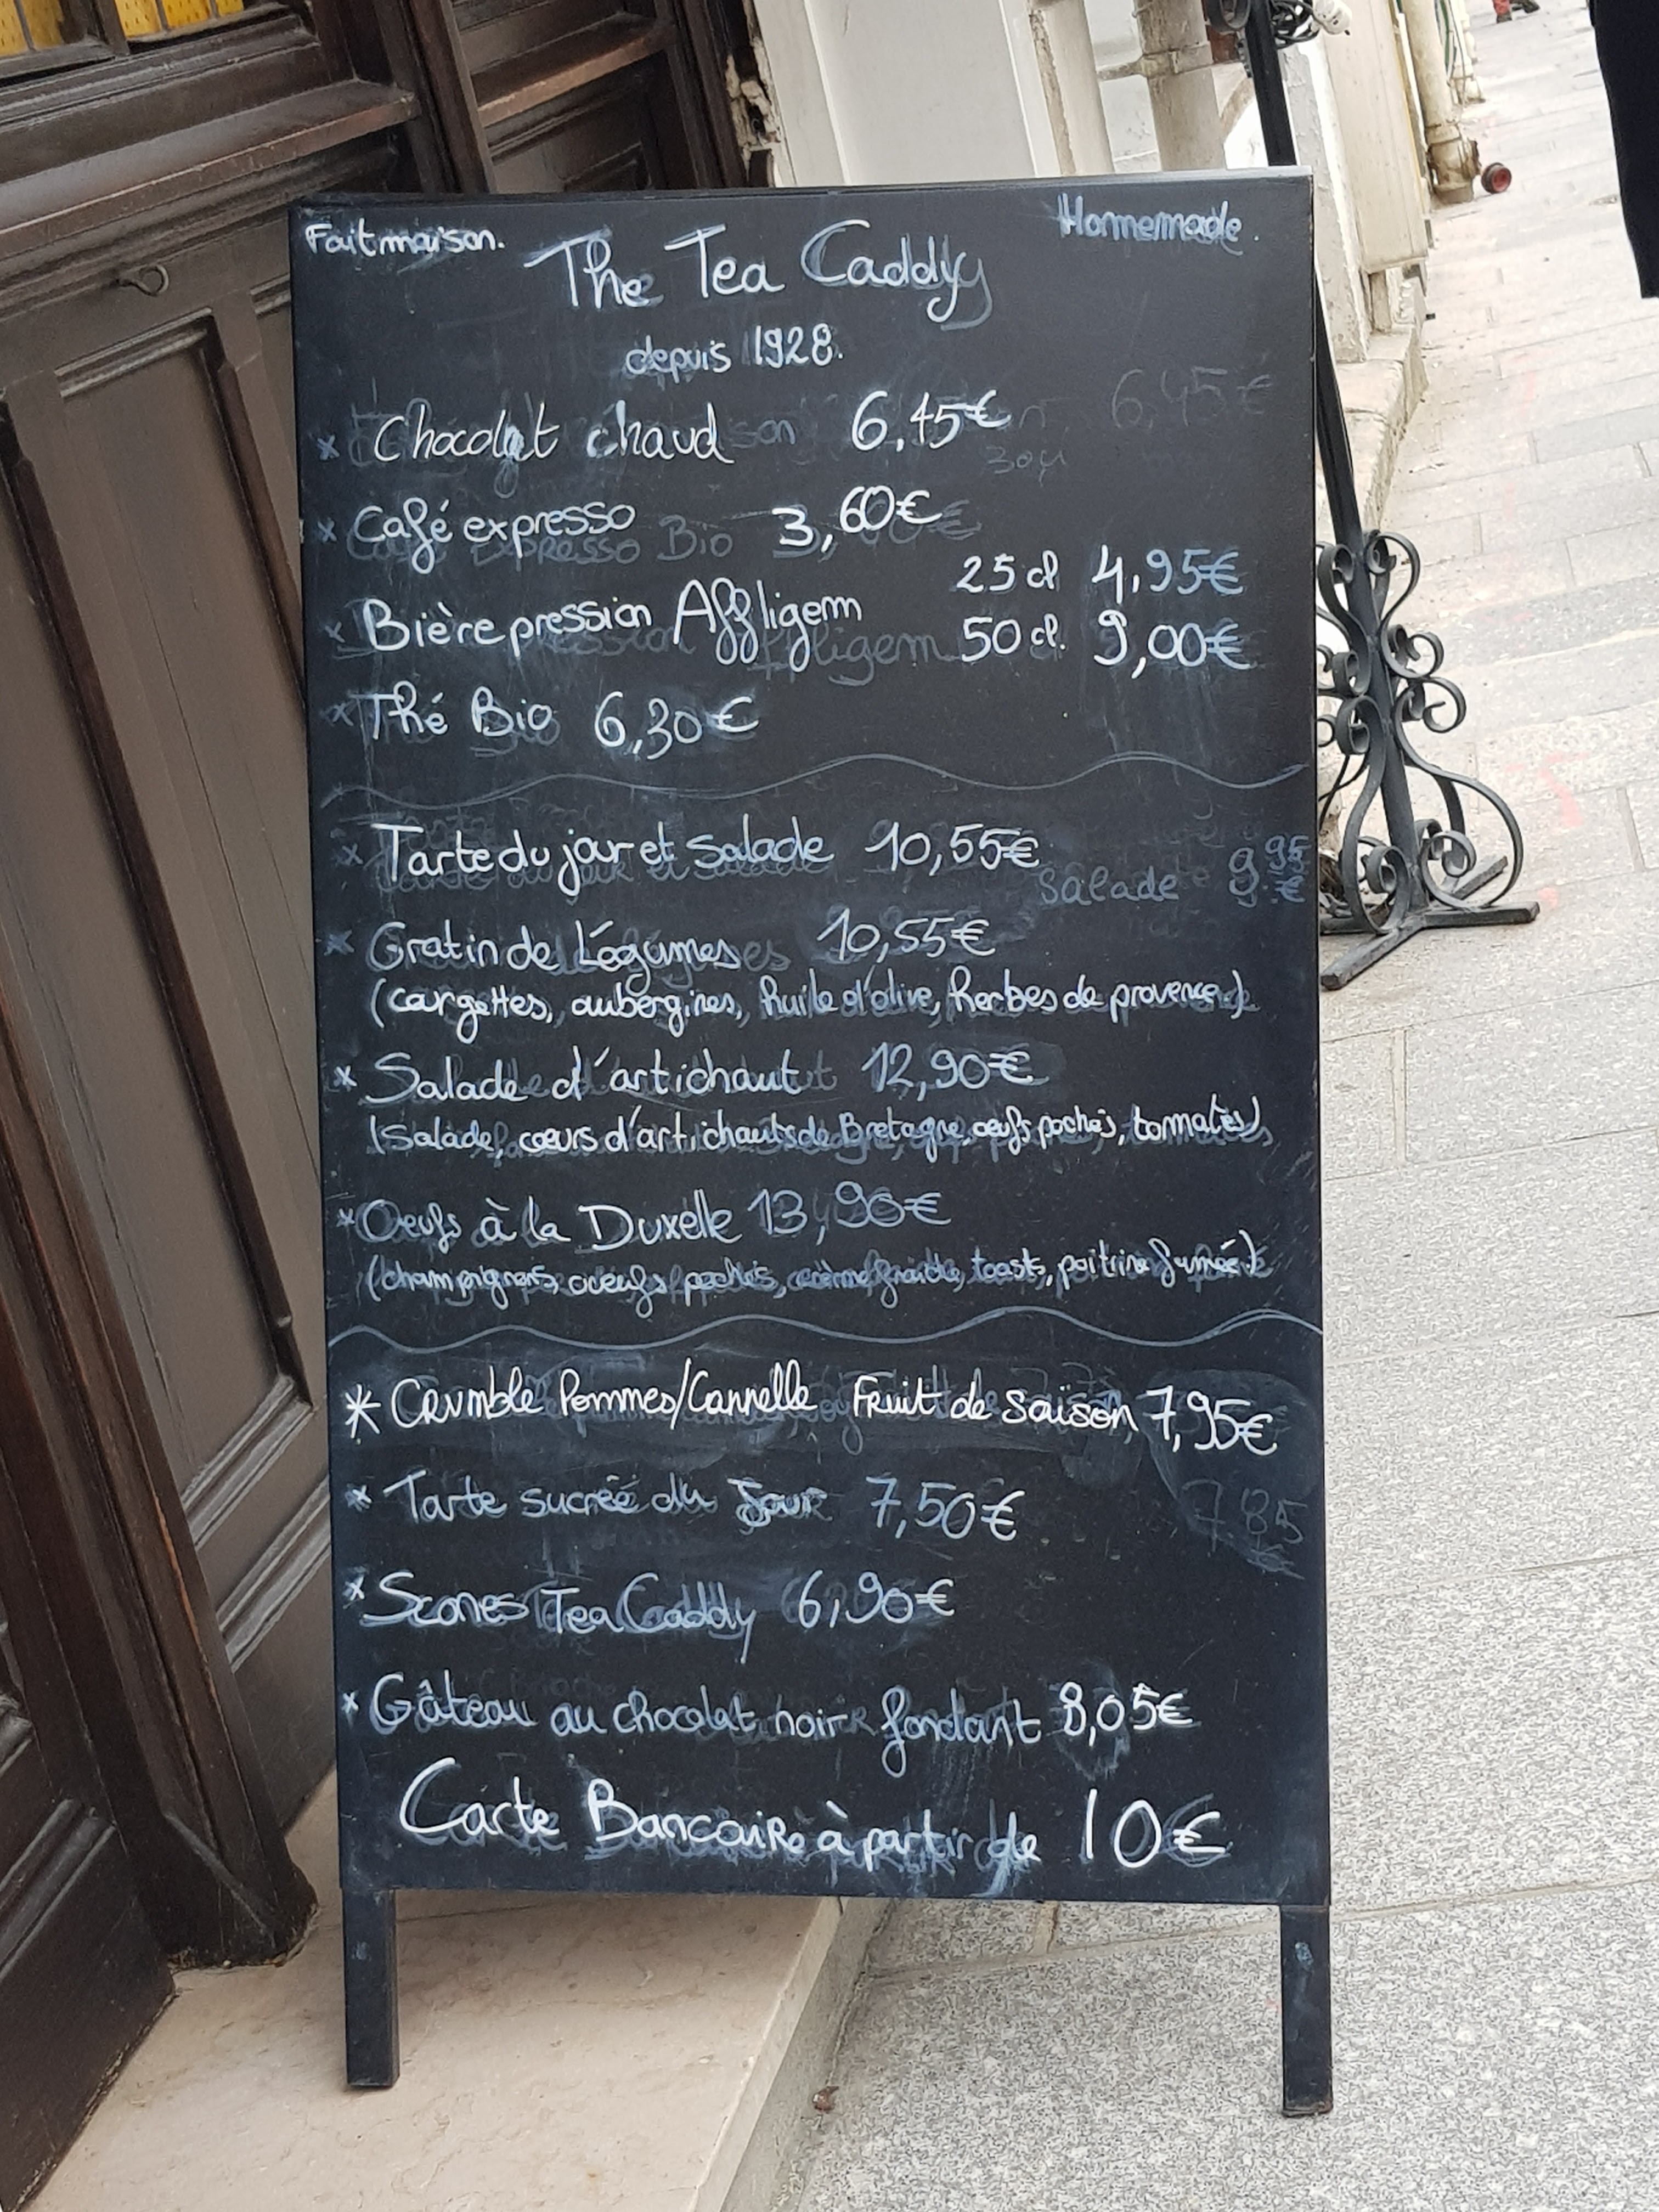 Fait maison.
Homemade.
The Tea Caddy
depuis 1928.
x Chocolat chaud 6,45€
x Café expresso 3,60€
x Bière pression Affligem 25 cl 4,95€
50 cl. 9,00€
x Thé Bio 6,30€
x Tarte du jour et salade 10,55€
x Gratin de Légumes 10,55€
(courgettes, aubergines, huile d'olive, herbes de provence)
x Salade d'artichaut 12,90€
(Salade, cœurs d'artichauts de Bretagne, œufs pochés, tomates)
* Oeufs à la Duxelle 13,90€
(champignons, oeufs pochés, crème fraîche, toasts, poitrine fumée)
* Crumble Pommes/Cannelle Fruit de saison 7,95€
* Tarte sucrée du Jour 7,50€
* Scones Tea Caddy 6,90€
* Gâteau au chocolat noir fondant 8,05€
Carte Bancaire à partir de 10€